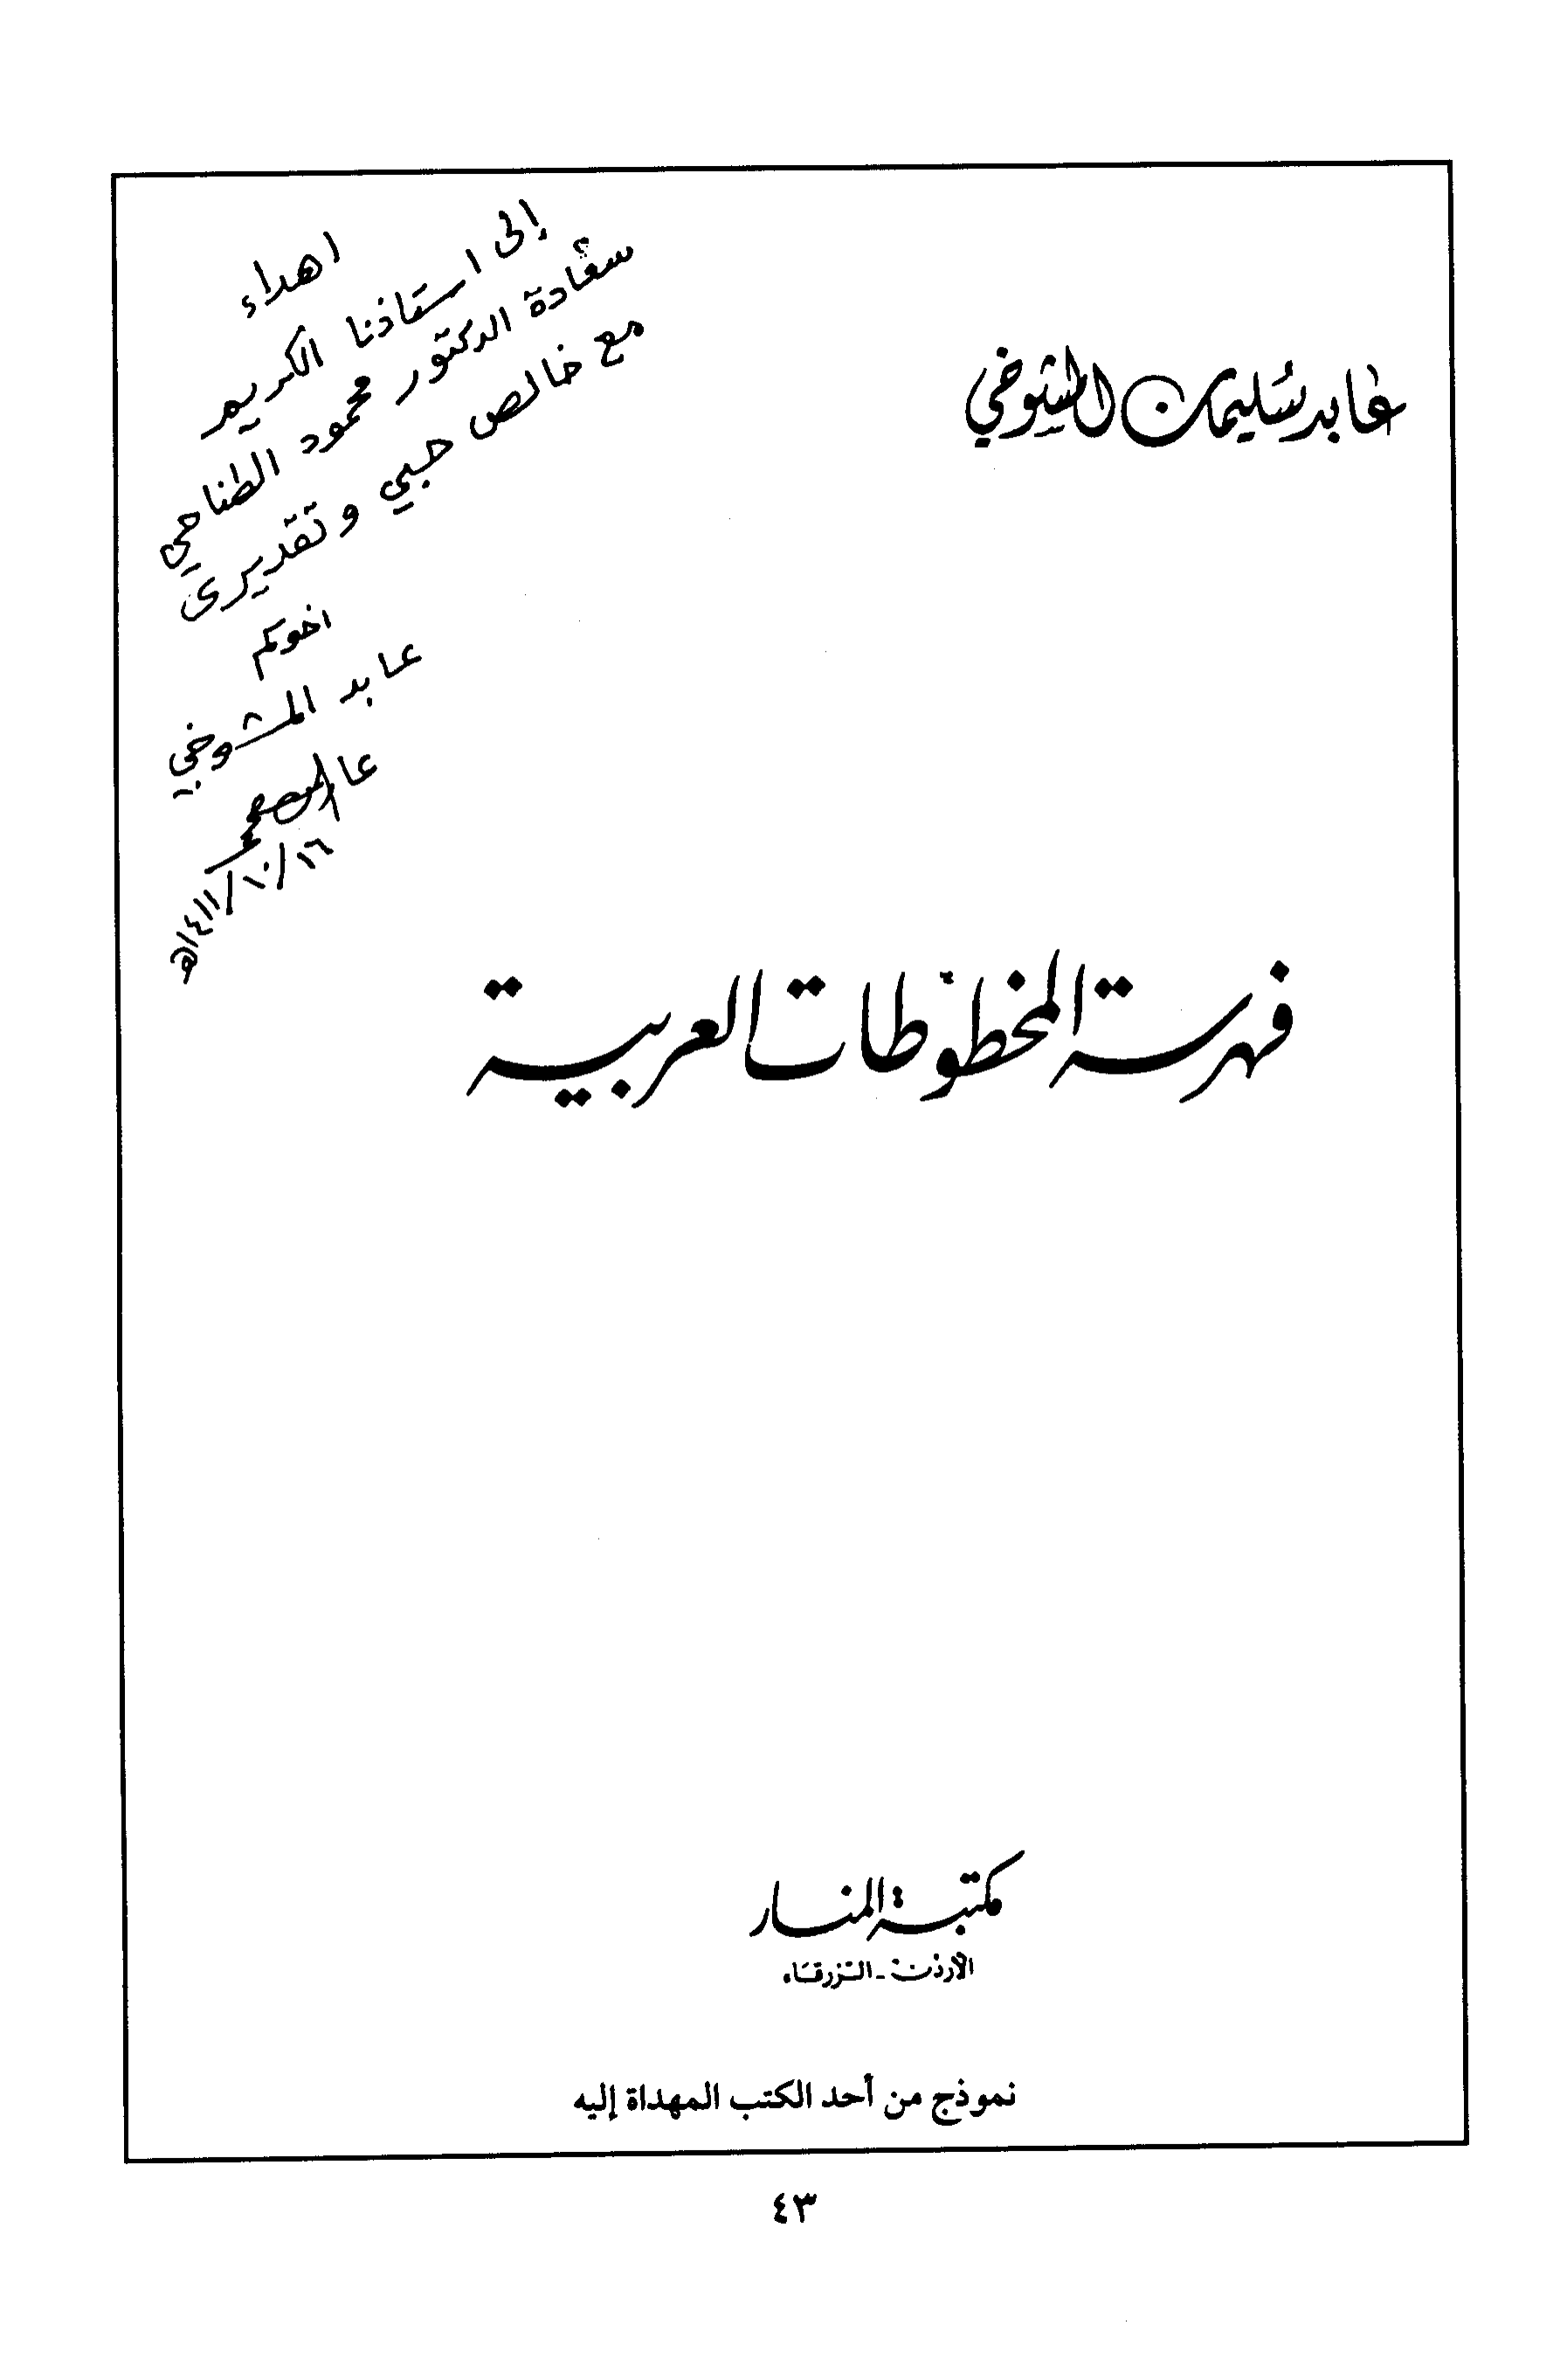 اهداء
إلى استاذنا الكريم
سعادة الدكتور محمود الطناحي
مع خالص حبي وتقديرى
اخوكم
عابد المشوخي
١٦/١٠/١٤١١هـ
عابد سليمان المشوخي
فهرسة المخطوطات العربية
مكتبة المنار
الأردن - الزرقاء
نموذج من أحد الكتب المهداة إليه
٤٣